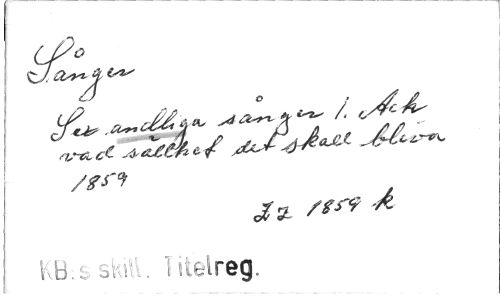 Sånger
Sex andliga sånger 1. Ack
vad sällhet det skall bliva
1859
ZZ 1859 k
KB:s skill. Titelreg.